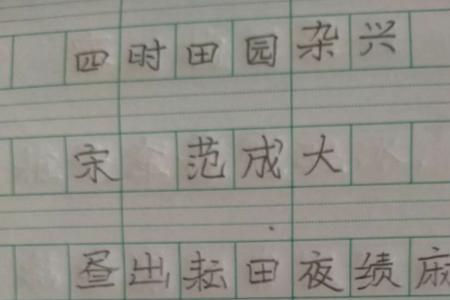 四时田园杂兴
宋 范成大
昼出耘田夜绩麻